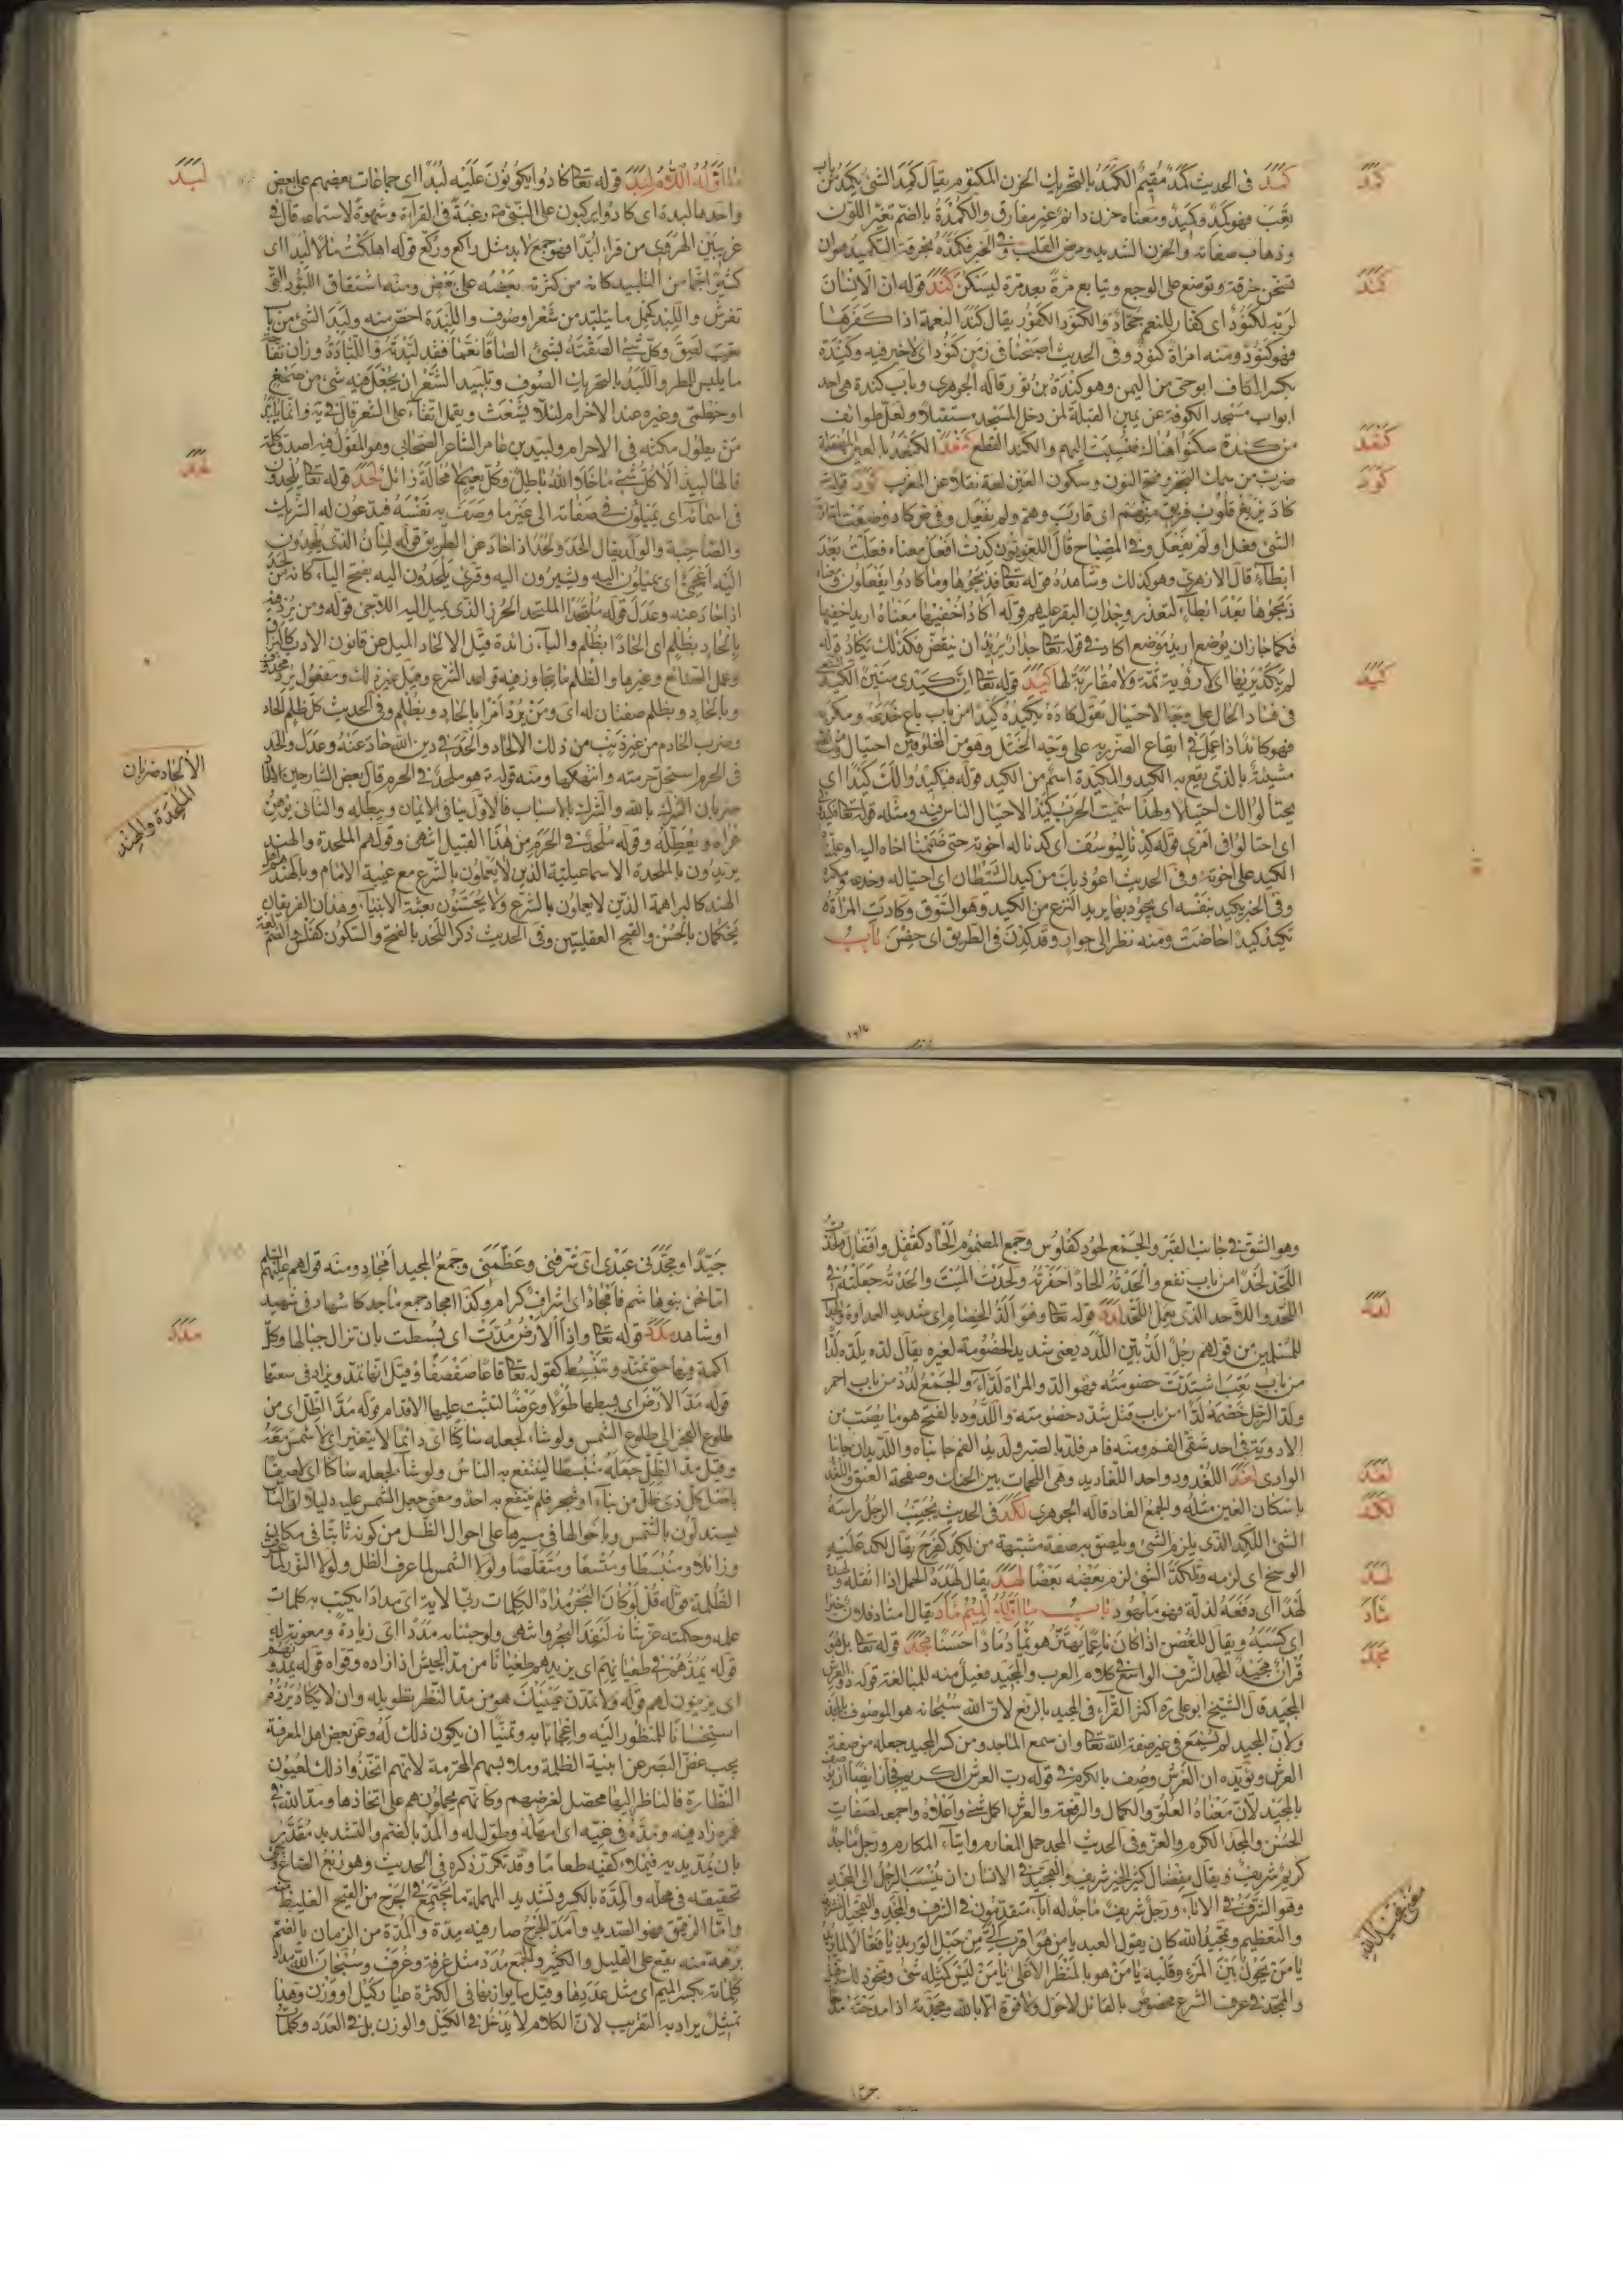 كمد
كمد فى الحديث كمد مقيم الكمد بالتحريك الحزن المكتوم يقال كمد الشئ يكمد من باب
تعب فهو كمد وكميد ومعناه حزن دائم غير مفارق والكمدة بالضم تغير اللون
وذهاب صفائه والحزن الشديد ومرض القلب وفى الخبر فكمده بخرقة التكميد هو ان
كند
تسخن خرقة وتوضع على الوجع ويتابع مرة بعد مرة ليسكن كند قوله ان الانسان
لربه لكنود اى كفار للنعم جحاد والكنود الكفور يقال كند النعمة اذا كفرها
فهو كنود ومنه امراة كنود وفى الحديث اصبحنا فى زمن كنود اى لا خير فيه وكندة
بكسر الكاف ابو حى من اليمن وهو كندة بن ثور قاله الجوهرى وباب كندة هى احد
ابواب مسجد الكوفة عن يمين القبلة لمن دخل المسجد مستقبلا ولعل طوائف
كنعد
من كندة سكنوا هناك فنسبت اليهم والكند القطع كنعد الكنعد بالعين المهملة
كود
ضرب من سمك البحر وفتح النون وسكون العين لغة نقلا عن المغرب كود قوله
كاد يزيغ قلوب فريق منهم اى قارب وهم ولم يفعل
الشئ فعل او لم يفعل وفى المصباح قال اللغويون كدت افعل معناه فعلت بعد
ابطاء قال الازهرى وهو كذلك وشاهده قوله تعالى فذبحوها وما كادوا يفعلون ومعناه
ذبحوها بعد ابطاء لتعذر وجدان البقر عليهم قوله اكاد اخفيها معناه اريد اخفيها
فكما جاز ان يوضع اريد موضع اكاد فى قوله تعالى جدارا يريد ان ينقض فكذلك يكاد قوله
كيد
لم يكد يريها اى لا رؤية ثمة ولا مقاربة لها كيد قوله تعالى ان كيدى متين الكيد
فى فساد الحال على وجه الاحتيال تقول كاده يكيده كيدا من باب باع خدعه ومكر به
فهو كائد اذا عمل فى ايقاع الضرر به على وجه الختل وهو من المخلوقين احتيال
مشيئة بالذى يقع به الكيد والمكيدة اسم من الكيد قوله فيكيدوا لك كيدا اى
يحتالوا لك احتيالا ولهذا سميت الحرب كيدا لاحتيال الناس فيه ومثله قوله تعالى
اى احتالوا فى امرى قوله كدنا ليوسف اى كدنا له اخوته حتى ضممنا اخاه اليه او علمنا
الكيد على اخوته وفى الحديث اعوذ بك من كيد الشيطان اى احتياله وخدعه ومكره
وفى الخبر يكيد بنفسه اى يجود بها يريد النزع من الكيد وهو السوق وكادت المراة
تكيد كيدا حاضت ومنه نظر الى جوار وقد كدن فى الطريق اى حضن باب
لبد
ما اوله اللام لبد قوله تعالى كادوا يكونون عليه لبدا اى جماعات بعضهم على بعض
واحدها لبدة اى كادوا يركبون على النبى رغبة فى القراءة وشهوة لاستماعه قال فى
غريبين الهروى من قرا لبدا فهو جمع لابد مثل راكع وركع قوله اهلكت مالا لبدا اى
كثيرا جما من التلبيد كانه من كثرته بعضه على بعض ومنه اشتقاق اللبود التى
تفرش واللبد كحمل ما يتلبد من شعر او صوف واللبدة اخص منه ولبد الشئ من باب
تعب لصق وكل شئ الصقته بشئ الصاقا نعما فقد لبدته واللبادة وزان تفاحة
ما يلبس للمطر واللبد بالتحريك الصوف وتلبيد الشعر ان يجعل فيه شئ من صمغ
او خطمى وغيره عند الاحرام لئلا يشعث ويقمل اتقاء على الشعر قال فى يه وانما يلبد
من يطول مكثه فى الاحرام ولبيد بن عامر الشاعر الصحابى وهو المقول فيه اصدق كلمة
لحد
قالها لبيد الا كل شئ ما خلا الله باطل وكل نعيم لا محالة زائل لحد قوله تعالى يلحدون
فى اسمائه اى يميلون فى صفاته الى غير ما وصف به نفسه فيدعون له الشريك
والصاحبة والولد يقال الحد ولحد اذا حاد عن الطريق قوله لسان الذى يلحدون
اليه اعجمى اى يميلون اليه ويشيرون اليه وقرئ يلحدون اليه بفتح الياء كانه من لحد
اذا حاد عنه وعدل قوله ملتحدا الملتحد الحرز الذى يميل اليه اللاجئ قوله ومن يرد فيه
بالحاد بظلم اى الحادا بظلم والباء زائدة قيل الالحاد الميل عن قانون الادب
وعمل الصنائع وغيرها والظلم ما يتجاوز فيه قواعد الشرع وقيل غير ذلك ومفعول يرد محذوف
وبالحاد وبظلم صفتان له اى ومن يرد امرا بالحاد وبظلم وفى الحديث كل ظلم الحاد
وضرب الخادم من غير ذنب من ذلك الالحاد والحد فى دين الله حاد عنه وعدل والحد
الالحاد ضربان
فى الحرم استحل حرمته وانتهكها ومنه قوله هو ملحد فى الحرم قال بعض الشارحين الالحاد
ضربان الشرك بالله والشرك بالاسباب فالاول ينافى الايمان ويبطله والثانى يوهن
الملحدة والهند
عراه ويعطله وقوله ملحد فى الحرم من هذا القبيل انتهى وقولهم الملحدة والهند
يريدون بالملحدة الاسماعيلية الذين لا يعملون بالشرع مع غيبة الامام وبالهند
الهند كالبراهمة الذين لا يعملون بالشرع ولا يحسنون بعثة الانبياء وهذان الفريقان
يحكمان بالحسن والقبح العقليين وفى الحديث ذكر اللحد بالفتح والسكون كفلس والضم لغة
وهو الشق فى جانب القبر والجمع لحود كفلوس وجمع المضموم الحاد كقفل واقفال
اللحد لحدا من باب نفع والحدته الحادا حفرته ولحدت الميت والحدته جعلته فى
لدد
اللحد واللاحد الذى يعمل اللحد لدد قوله تعالى وهو الد الخصام اى شديد العداوة
للمسلمين من قولهم رجل الد بين اللدد يعنى شديد الخصومة لغيره يقال لده يلده لدا
من باب تعب اشتدت خصومته فهو الد والمراة لداء والجمع لد من باب احمر
ولد الرجل خصمه لدا من باب قتل شدد خصومته واللدود بالفتح هو ما يصب من
الادوية فى احد شقى الفم ومنه فامر فلد بالصبر ولديد الفم جانباه واللديدان جانبا
لغد
الوادى لغد اللغدود واحد اللغاديد وهى اللحمات بين الحنك وصفحة العنق واللغد
لكد
باسكان الغين مثله والجمع الغاد قاله الجوهرى لكد فى الحديث يجنب الرجل راسه
الشئ اللكد الذى يلزم الشئ ويلصق به صفة مشبهة من لكد كفرح يقال لكد عليه
لهد
الوسخ اى لزمه وتلكد الشئ لزم بعضه بعضا لهد يقال لهده الحمل اذا اثقله
ماد
لهدا اى دفعه لذله فهو ملهود باب ما اوله الميم ماد يقال امتاد فلان خيرا
مجد
اى كسبه ويقال للغصن اذا كان ناعما يهتز هو يماد مادا حسنا مجد قوله تعالى بل هو
قران مجيد المجد الشرف الواسع فى كلام العرب والمجيد فعيل منه للمبالغة قوله ذو العرش
المجيد قال الشيخ ابو على ره اكثر القراء فى المجيد بالرفع لان الله سبحانه هو الموصوف بالمجد
ولان المجيد لم يسمع فى غير صفة الله تعالى وان سمع الماجد ومن كسر المجيد جعله من صفة
العرش ويؤيده ان العرش وصف بالكرم فى قوله رب العرش الكريم فجاز ايضا ان يوصف
بالمجيد لان معناه العلو والكمال والرفعة والعرش اكمل شئ واعلاه واجمعه لصفات
الحسن والمجد الكرم والعز وفى الحديث المجد حمل المغارم وايتاء المكارم ورجل ماجد
كريم شريف ويقال مفضال كثير الخير شريف والمجد فى الانسان ان ينسب الرجل الى المجد
وهو الشرف فى الاباء ورجل شريف ماجد له اباء متقدمون فى الشرف والمجد والتمجيد التشريف
والتعظيم وتمجيد الله كان يقول العبد يا من هو اقرب الى من حبل الوريد يا فعالا لما يريد
يا من يحول بين المرء وقلبه يا من هو بالمنظر الاعلى يا من ليس كمثله شئ ونحو ذلك
والمجد فى عرف الشرع مخصوص بالقائل لا حول ولا قوة الا بالله ومجدته اذا مدحته
جيدا ومجدنى عبدى اى شرفنى وعظمنى وجمع المجيد امجاد ومنه قولهم عليهم السلم
اما نحن بنو هاشم فامجاد اى اشراف كرام وكذا امجاد جمع ماجد كاشهاد فى شهيد
مدد
او شاهد مدد قوله تعالى واذا الارض مدت اى بسطت بان تزال جبالها وكل
اكمة فيها حتى تمتد وتنبسط كقوله تعالى قاعا صفصفا وقيل انها تمد ويزاد فى سعتها
قوله مد الارض اى بسطها طولا وعرضا لتثبت عليها الاقدام قوله مد الظل اى من
طلوع الفجر الى طلوع الشمس ولو شاء لجعله ساكنا اى دائما لا يتغير اى لا شمس معه
وقيل مد الظل جعله منبسطا لينتفع به الناس ولو شاء لجعله ساكنا اى لاصقا
باصل كل ذى ظل من بناء او شجر فلم ينتفع به احد ومعنى جعل الشمس عليه دليلا ان الناس
يستدلون بالشمس وباحوالها فى مسيرها على احوال الظل من كونه ثابتا فى مكان
وزائلا ومنبسطا ومتسعا ومتقلصا ولولا الشمس لما عرف الظل ولولا النور لما عرف
الظلمة قوله قل لو كان البحر مدادا لكلمات ربى الاية اى مدادا يكتب به كلمات
علمه وحكمته عز شانه لنفد البحر انتهى ولو جئنا به مددا اى زيادة ومعونة له
قوله يمدهم فى طغيانهم اى يزيدهم طغيانا من مد الجيش اذا زاده وقواه قوله
اى يزينون لهم قوله ولا تمدن عينيك هو من مد النظر تطويله وان لا يكاد يرده
استحسانا للمنظور اليه واعجابا به وتمنيا ان يكون ذلك له وعن بعض اهل المعرفة
يجب غض البصر عن ابنية الظلمة وملابسهم المحرمة لانهم اتخذوا ذلك لعيون
النظارة فالناظر اليها محصل لغرضهم وكانهم يحملونهم على اتخاذها ومد الله فى
عمره زاد فيه ومده فى غيه اى امهله وطول له والمد بالضم والتشديد مقدر
بان يمد يديه فيملاء كفيه طعاما وقد تكرر ذكره فى الحديث وهو ربع الصاع
تحقيقه فى محله والمدة بالكسر وتشديد المهملة ما يجتمع فى الجرح من القيح الغليظ
واما الرقيق فهو الصديد وامد الجرح صار فيه مدة والمدة من الزمان بالضم
برهة منه يقع على القليل والكثير والجمع مدد مثل غرفة وغرف وسبحان الله مداد
كلماته بكسر الميم اى مثل عددها وقيل ما يوازنها فى الكثرة عيار كيل او وزن وهذا
تمثيل يراد به التقريب لان الكلام لا يدخل فى الكيل والوزن بل فى العدد